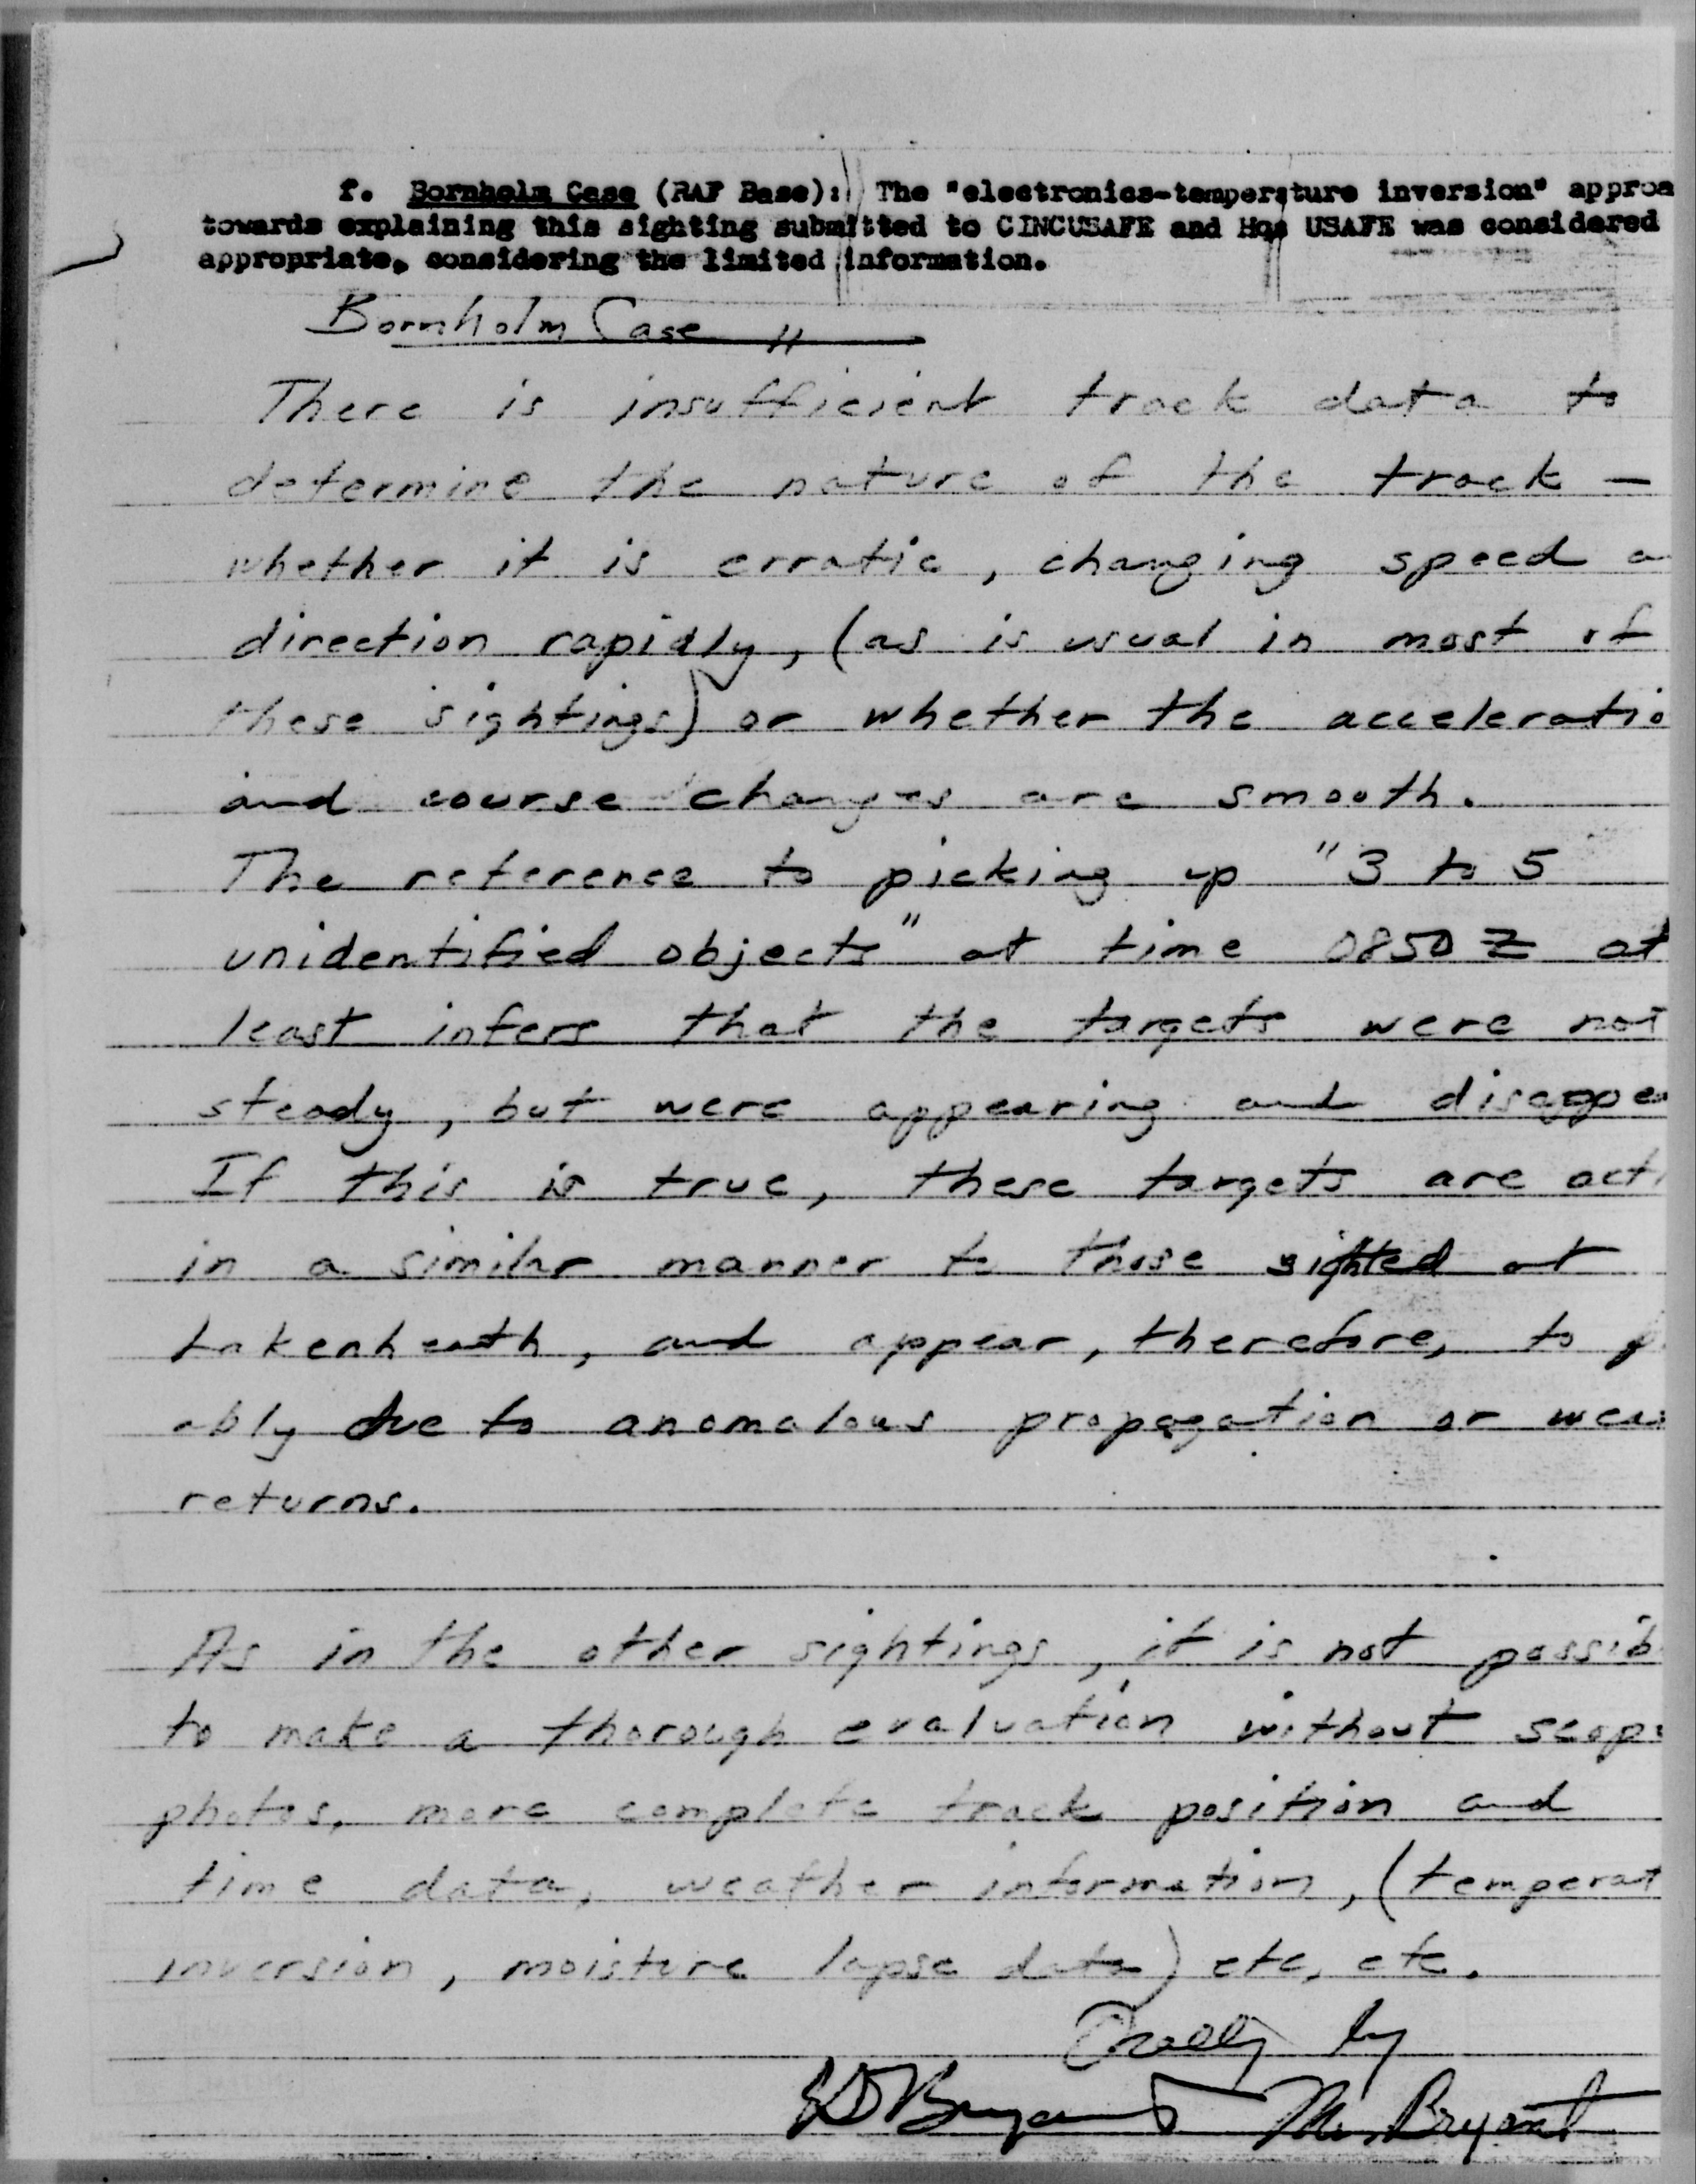 f. Bornholm Case (RAF Base): The "electronics-temperature inversion" approa
towards explaining this sighting submitted to CINCUSAFE and Hqs USAFE was considered
appropriate, considering the limited information.
Bornholm Case
There is insufficient track data to
determine the nature of the track —
whether it is erratic, changing speed a
direction rapidly, (as is usual in most of
these sightings) or whether the acceleratio
and course changes are smooth.
The reference to picking up "3 to 5
unidentified objects" at time 0850 Z at
least infers that the targets were not
steady, but were appearing and disappea
If this is true, these targets are acti
in a similar manner to those sighted at
Lakenheath, and appear, therefore, to p
ably due to anomalous propagation or wea
returns.
As in the other sightings, it is not possib
to make a thorough evaluation without scope
photos, more complete track position and
time data, weather information, (temperat
inversion, moisture lapse data) etc, etc.
Orally by
Bryant Mr. Bryant